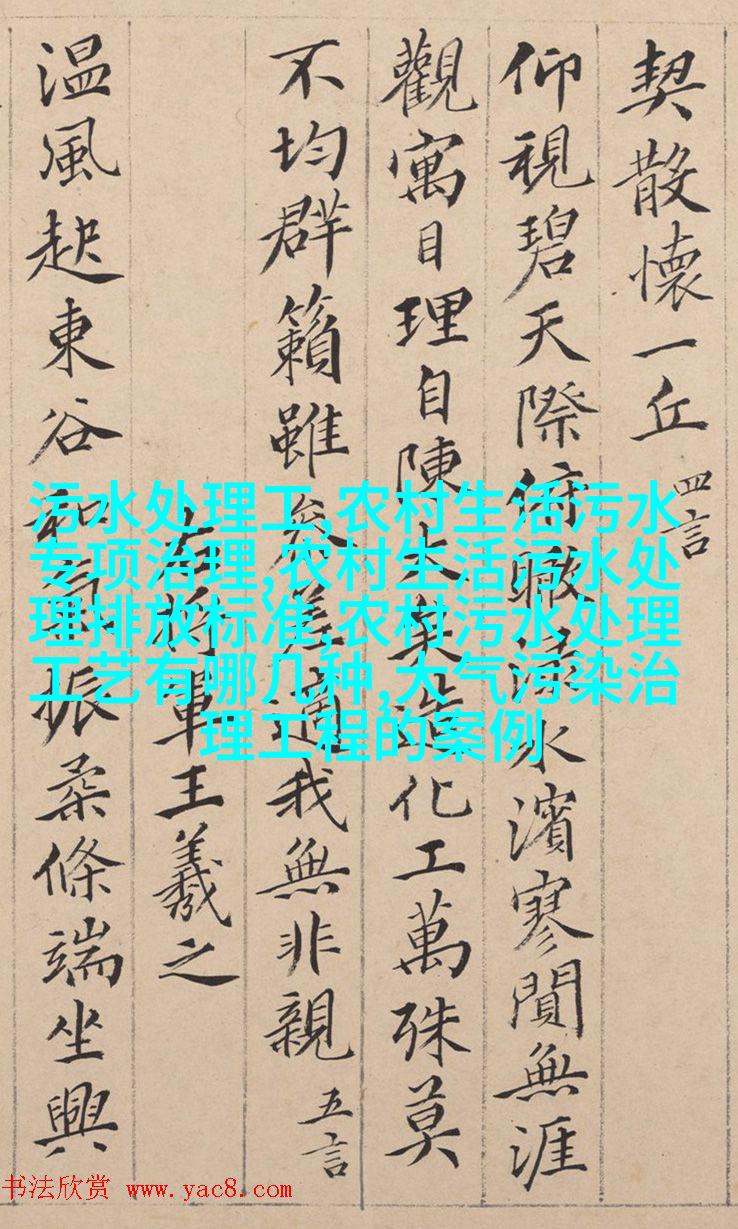 契散懷一丘 四言
仰視碧天際俯瞰淥水濱寥閴無涯
觀寓目理自陳大矣造化工萬殊莫
不均群籟雖參差適我無非親 五言
右將軍王羲之
温風起東谷和氣振柔條端坐興
污水处理工,农村生活污水
专项治理,农村生活污水处
理排放标准,农村污水处理
工艺有哪几种,大气污染治
理工程的案例
书法欣赏 www.yac8.com